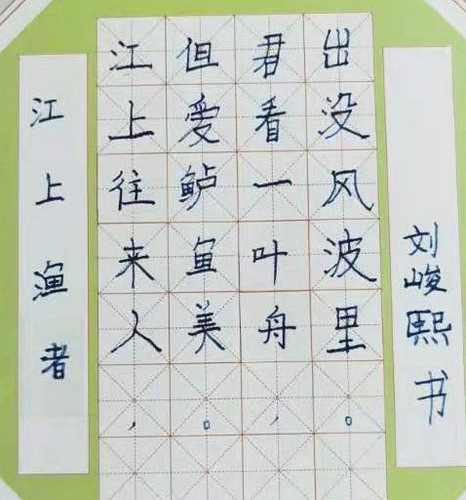 江上渔者
江上往来人，
但爱鲈鱼美。
君看一叶舟，
出没风波里。
刘峻熙书